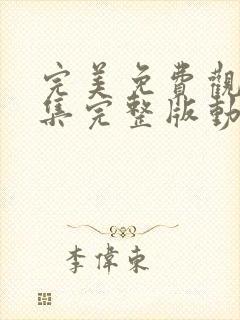 完美免費觀
集完整版動
李偉東